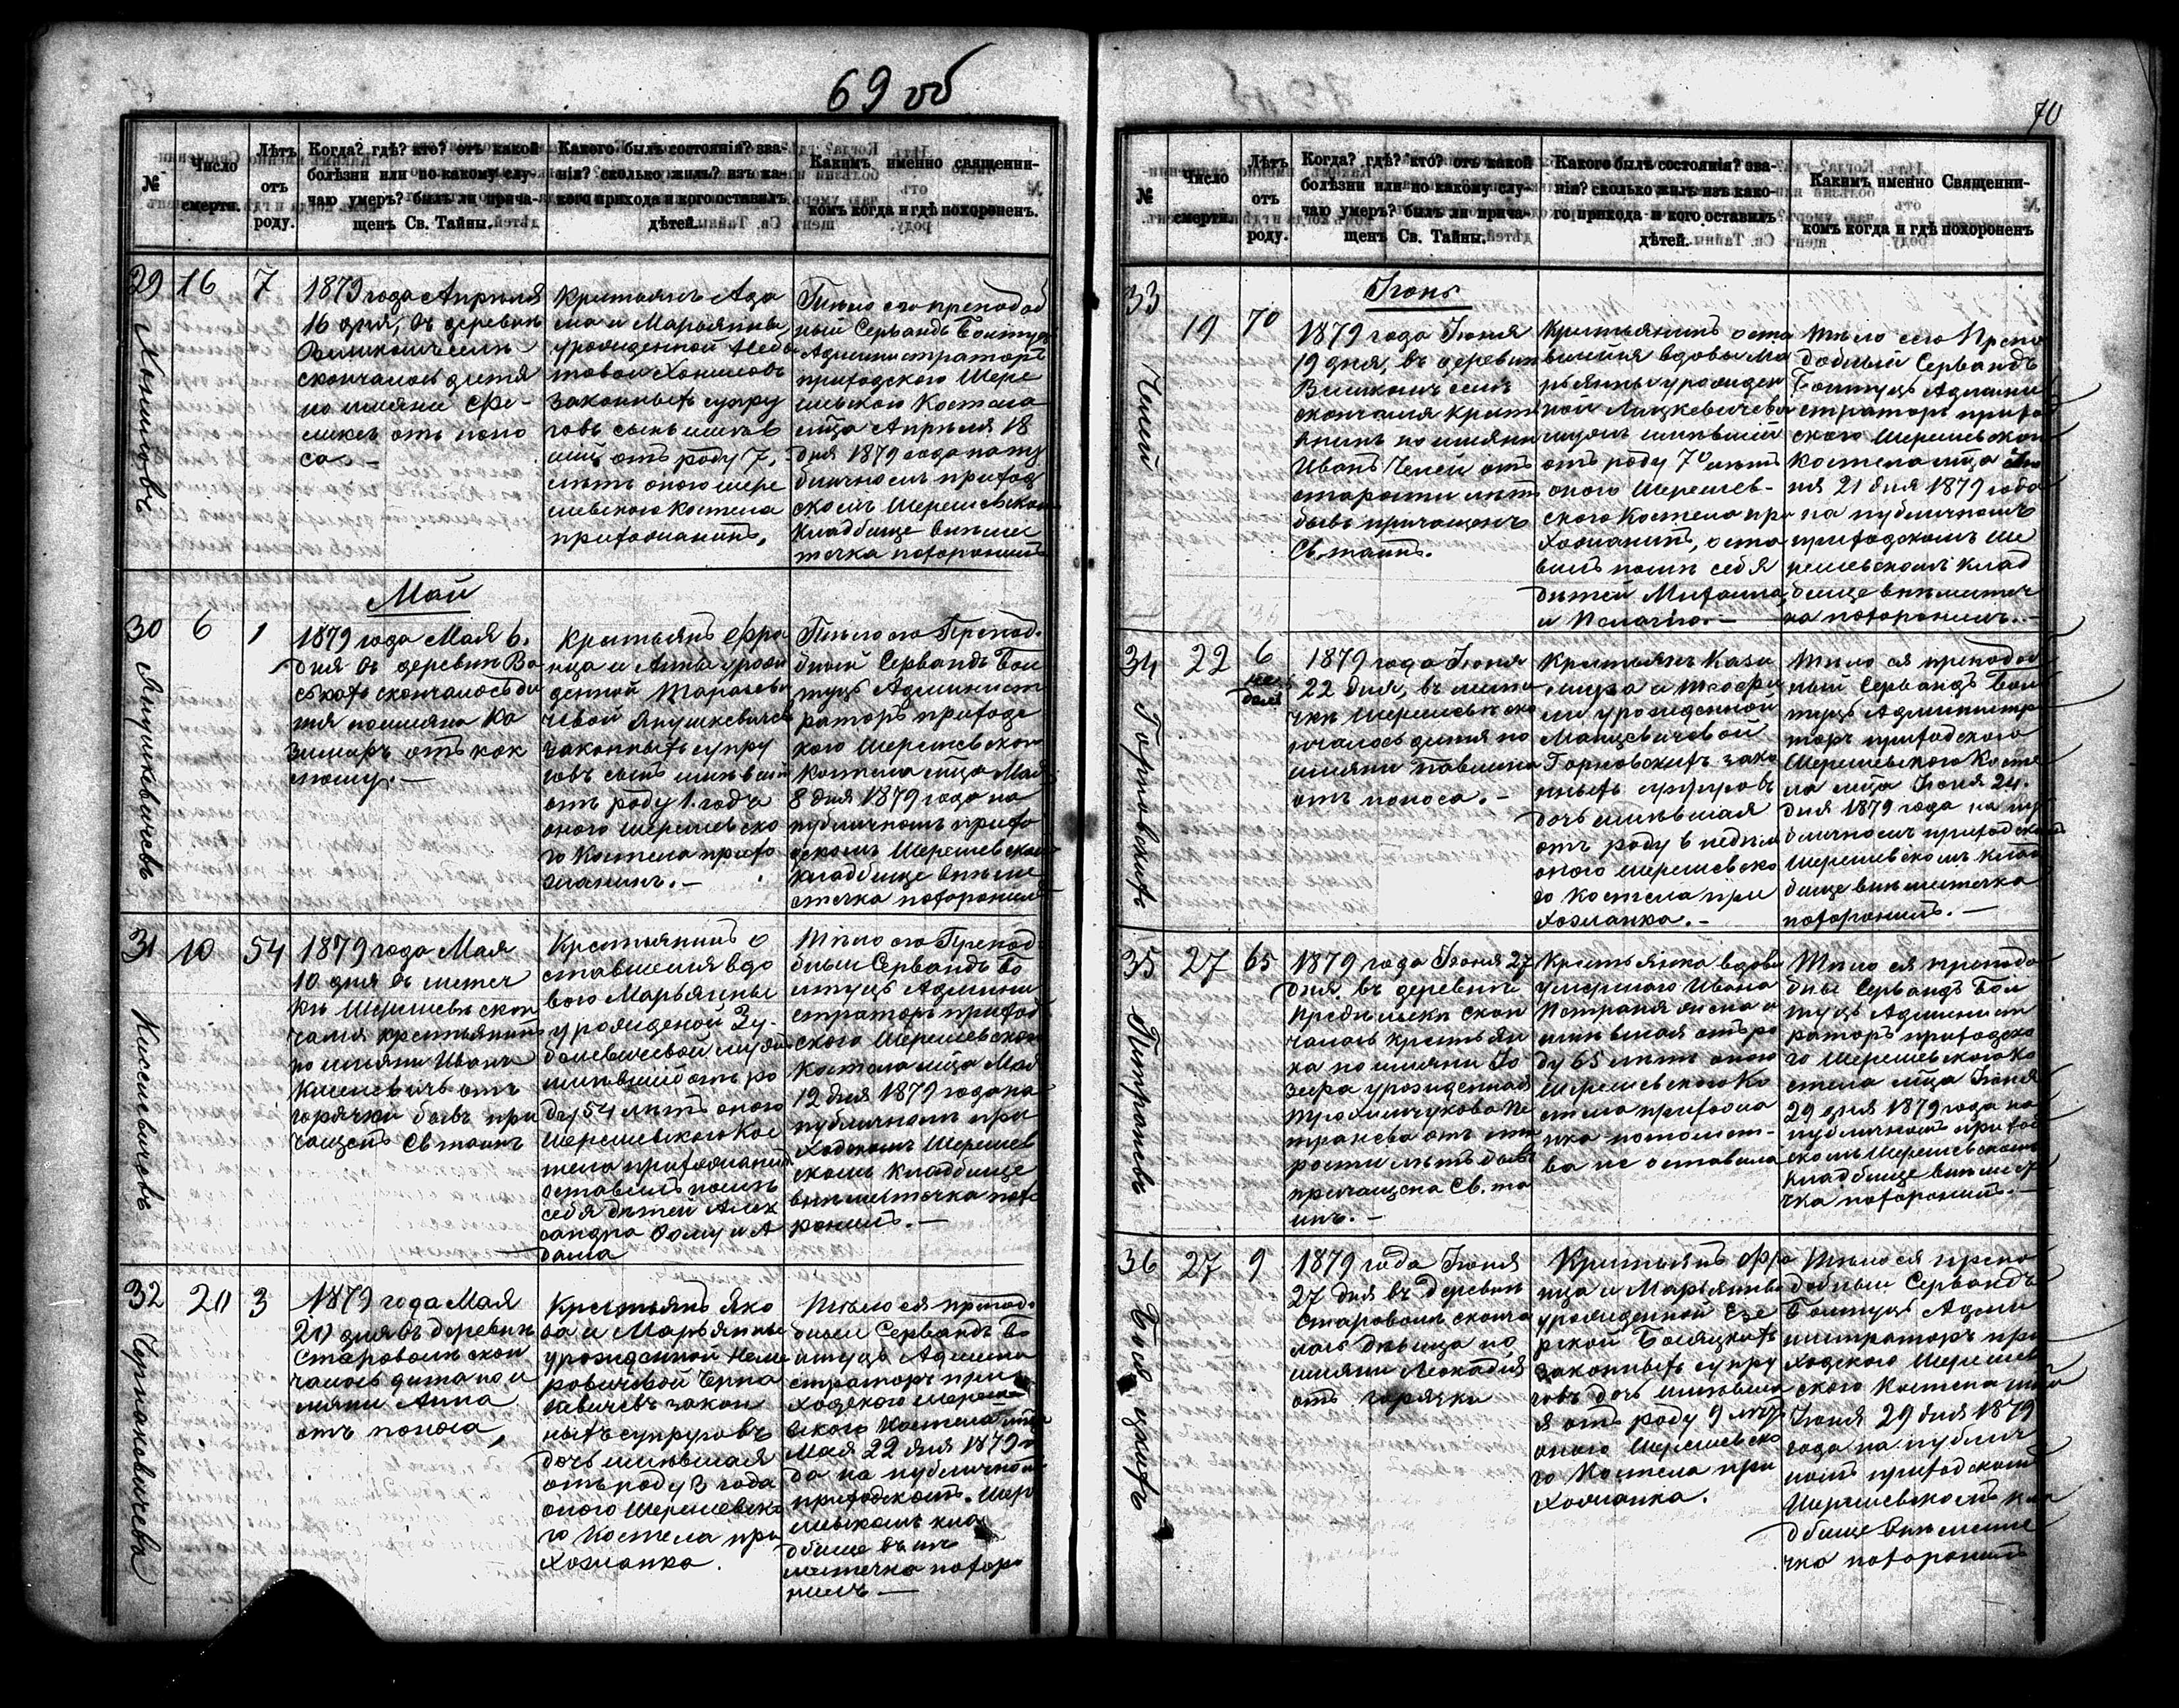 69 об
№
Число
смерти.
Лѣтъ
отъ
роду.
Когда? гдѣ? кто? отъ какой
болѣзни или по какому слу-
чаю умеръ? былъ ли прича-
щенъ Св. Тайны.
Какого былъ состоянія? зва-
нія? сколько жилъ? изъ ка-
кого прихода и кого оставилъ
дѣтей.
Какимъ именно священни-
комъ когда и гдѣ похороненъ.
29
16
7
1879 года Апрѣля
16 дня, въ деревнѣ
скончалось дитя
по имяни Фе-
ликсъ отъ поно
са. —
Крестьянъ Ада
ма и Марьянны
урожденной
законныхъ супру
говъ сынъ имѣв
шій отъ роду 7.
лѣтъ оного Шере
шевского Костела
прихожанинъ.
Тѣло его преподоб
ный Сервандъ
Администраторъ
приходского Шере
шевского Костела
мца Апрѣля 18
дня 1879 года на пу
бличномъ приход
скомъ Шерешевскомъ
кладбище внѣ ме
течка похоронилъ
Май
30
6
1
Янушкевичевъ
1879 года Мая 6.
дня въ деревнѣ
скончалось ди
тя по имяни Ка
зимиръ отъ кок
люшу. —
Крестьянъ Фра
нца и Анны урож
денной
чевой Янушкевичевъ
законныхъ супру
говъ сынъ имѣвшій
отъ роду 1. годъ
оного Шерешевско
го Костела прихо
жанинъ. —
Тѣло его Препод
бный Сервандъ
Админист
раторъ приходс
кого Шерешевского
Костела мца Мая
8 дня 1879 года на
публичномъ прихо
дскомъ Шерешевскомъ
кладбище внѣ ме
стечка похоронилъ
31
10
54
Киселевичевъ
1879 года Мая
10 дня въ местеч
кѣ Шерешевѣ скон
чался крестьянинъ
по имяни Иванъ
Киселевичъ отъ
горячки бывъ при
чащенъ Св. таинъ
Крестьянинъ о
ставшейся вдо
вою Марьянны
урожденой Зу-
болевичевой мужъ
имѣвшій отъ ро
ду 54 лѣтъ оного
Шерешевского Кос
тела прихожанинъ
оставилъ послѣ
себя дѣтей Алек
сандра Фому и А
дама
Тѣло его Препод
бный Сервандъ
Админи
страторъ приход
ского Шерешевского
Костела мца Мая
12 дня 1879 года на
публичномъ при
ходскомъ Шерешев
скомъ кладбище
внѣ местечка похо
ронилъ. —
32
20
3
1879 года Мая
20 дня въ деревнѣ
Староволѣ скон
чалось дитя по и
мяни Анна
отъ поноса,
Крестьянъ Яко
ва и Марьянны
урожденной
законн
ныхъ супруговъ
дочь имѣвшая
отъ роду 3 года
оного Шерешевско
го Костела при
хожанка.
Тѣло ея препод
бный Сервандъ
Админи
страторъ при
ходского Шереше
вского Костела мца
Мая 22 дня 1879 го
да на публичномъ
приходскомъ. Шере
шевскомъ кла
дбище внѣ
местечка похоро
нилъ —
70
№
Число
смерти.
Лѣтъ
отъ
роду.
Когда? гдѣ? кто? отъ какой
болѣзни или по какому слу-
чаю умеръ? былъ ли прича-
щенъ Св. Тайны.
Какого былъ состоянія? зва-
нія? сколько жилъ изъ како-
го прихода и кого оставилъ
дѣтей.
Какимъ именно Священни-
комъ когда и гдѣ похороненъ
Іюнь
33
19
70
Чепей
1879 года Іюня
19 дня, въ деревнѣ
скончался крест
янинъ по имяни
Иванъ Чепей отъ
старости лѣтъ
бывъ причащенъ
Св. таинъ.
Крестьянинъ оста
вшейся вдовы Ма
рьянны урожден
ной Лицкевичевой
мужъ имѣвшій
отъ роду 70 лѣтъ
оного Шерешев-
ского Костела при
хожанинъ, оста
вилъ послѣ себя
дѣтей Михаила,
и Пелагію. —
Тѣло его Препо
добный Сервандъ
Админи
страторъ приход
ского Шерешевского
Костела мца Iю
ня 21 дня 1879 года
на публичномъ
приходскомъ Ше
решевскомъ клад
бище внѣ местеч
ка похоронилъ. —
34
22
6
не
дѣль
Горновскихъ
1879 года Іюня
22 дня, въ месте
чкѣ Шерешевѣ ско
нчалось дитя по
имяни Павлина
отъ поноса. —
Крестьянъ Кази
мира и Теофи
ли урожденной
Манцевичевой
Горновскихъ зако
нныхъ супруговъ
дочь имѣвшая
отъ роду 6 недѣль
оного Шерешевско
го Костела при
хожанка. —
Тѣло ея преподоб
ный Сервандъ
Администра
торъ приходского
Шерешевского Косте
ла мца Іюня 24.
дня 1879 года на пу
бличномъ приходскомъ
Шерешевскомъ клад
бище внѣ местечка
похоронилъ. —
35
27
65
1879 года Іюня 27
дня въ деревнѣ
скон
чалась крестьян
ка по имяни Іо
зефа урожденная
отъ ста
рости лѣтъ бывъ
причащена Св. та
инъ. —
Крестьянка вдова
умершого Ивана
имѣвшая отъ ро
ду 65 лѣтъ оного
Шерешевского Ко
стела прихожа
нка потомст-
ва не оставила
Тѣло ея преподо
бный Сервандъ
Админист
раторъ приходско
го Шерешевского Ко
стела мца Іюня
29 дня 1879 года на
публичномъ приход
скомъ Шерешевскомъ
кладбище внѣ месте
чка похоронилъ. —
36
27
9
1879 года Іюня
27 дня въ деревнѣ
Староволѣ сконча
лась дѣвица по
имяни Леокадія
отъ горячки
Крестьянъ Фра
нца и Марьянны
урожденной
законныхъ супру
говъ дочь имѣвша
я отъ роду 9 лѣтъ
оного Шерешевско
го Костела при
хожанка.
Тѣло ея препо
добный Сервандъ
Адми
нистраторъ при
ходского Шерешев
ского Костела мца
Іюня 29 дня 1879
года на публич
номъ приходскомъ
Шерешевскомъ кла
дбище внѣ месте
чка похоронилъ